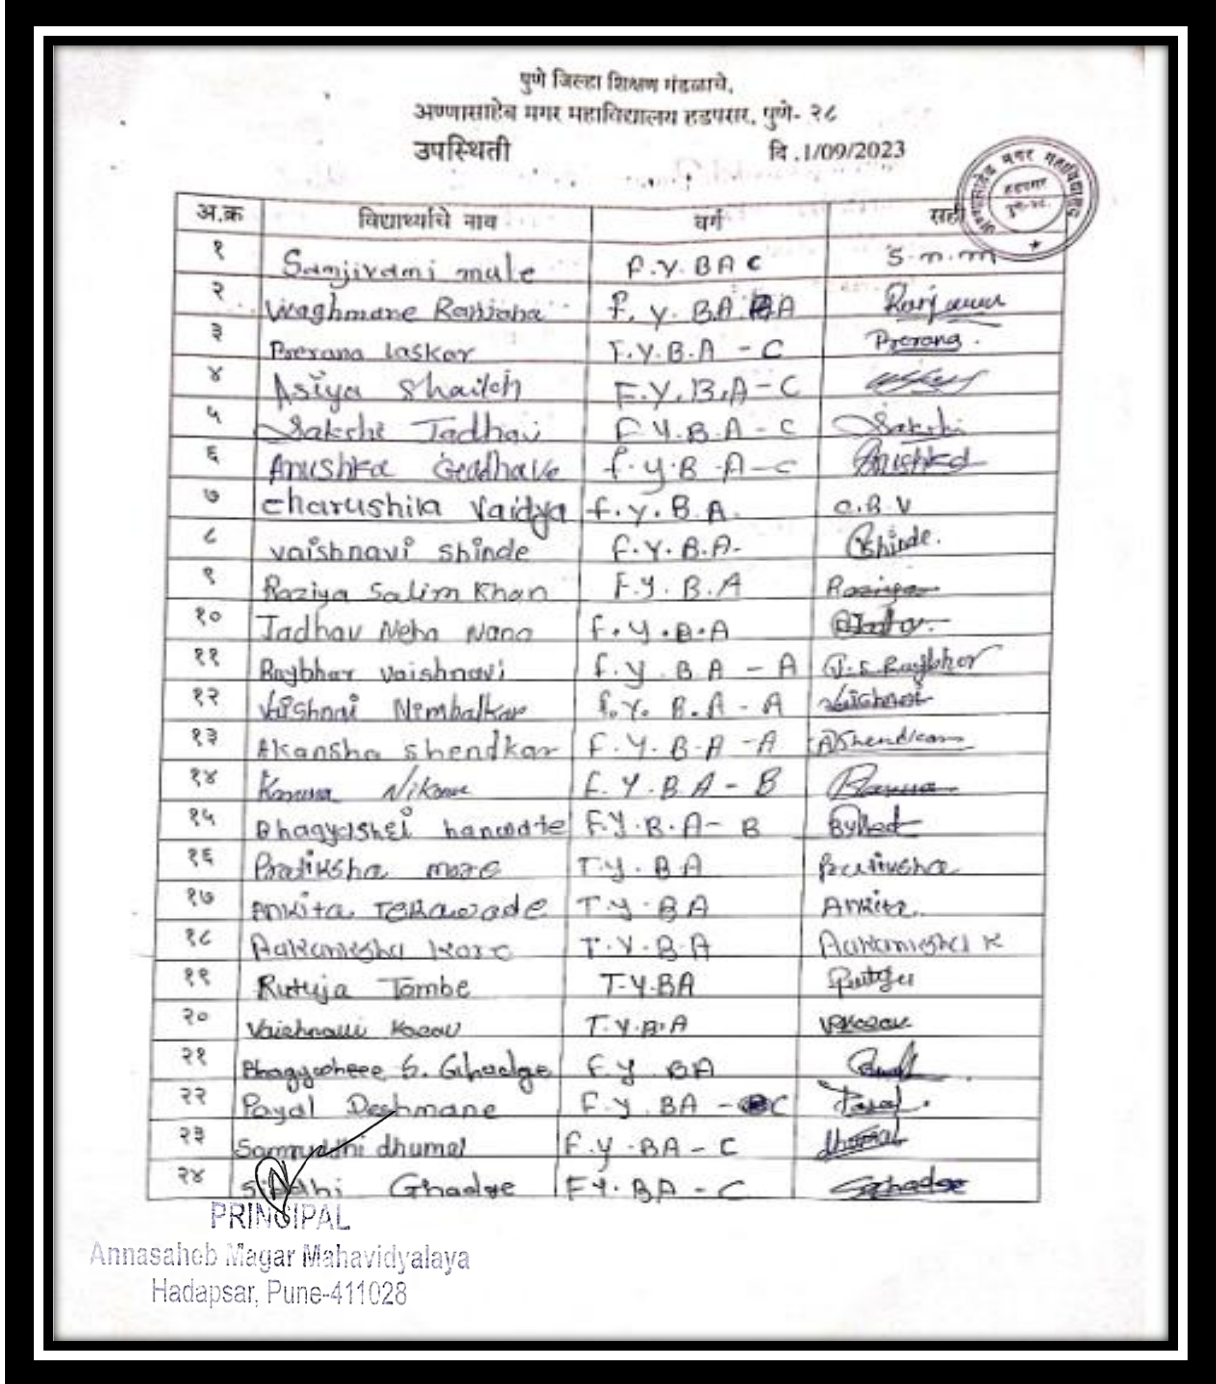 पुणे जिल्हा शिक्षण मंडळाचे,
अण्णासाहेब मगर महाविद्यालय हडपसर, पुणे- २८
उपस्थिती दि .1/09/2023
अण्णासाहेब मगर महाविद्यालय हडपसर पुणे-२८.
अ.क्र विद्यार्थ्याचे नाव वर्ग सही
१ Samjivani male F.Y.BA C S.m.m
२ Waghmare Ranjana F. Y. B.A. A Ranjana
३ Prerana laskar F.Y.B.A - C Prerana.
४ Asiya Shaikh F.Y.B.A-C
५ Sakshi Jadhav F Y.B.A-C Sakshi
६ Anushka Gadhave F.y.B.A-C Anushka
७ Charushila Vaidya F.Y.B.A. C.B.V
८ vaishnavi shinde F.Y.B.A. Shinde.
९ Raziya Salim Khan F.Y.B.A Raziya
१० Jadhav Neha Nana F.Y.B.A
११ Raybhar vaishnavi F.y.BA - A Raybhar
१२ Vaishnai Nimbalkar F.Y. B.A - A Vaishnavi
१३ Akansha shendkar F.Y.B.A -A AShendkar
१४ Nikam F.Y.B.A - B
१५ F.Y.B.A- B
१६ Pratiksha more T.y.BA Pratiksha
१७ Ankita T.Y.BA Ankita.
१८ Aakanksha T.Y.B.A Aakanksha K
१९ Rutuja Tombe T.Y.BA Rutuja
२० Vaishnavi T.Y.B.A
२१ S. Ghadge F.Y.BA
२२ Payal Deshmane F.Y.BA - C Payal.
२३ Samruddhi dhumal F.Y.BA - C dhumal
२४ Siddhi Ghadge F.Y.BA - C Sghadge
PRINCIPAL
Annasaheb Magar Mahavidyalaya
Hadapsar, Pune-411028